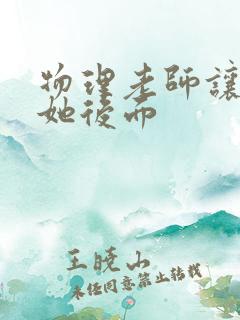 物理老師讓
她後而
王曉山
未经同意禁止转载